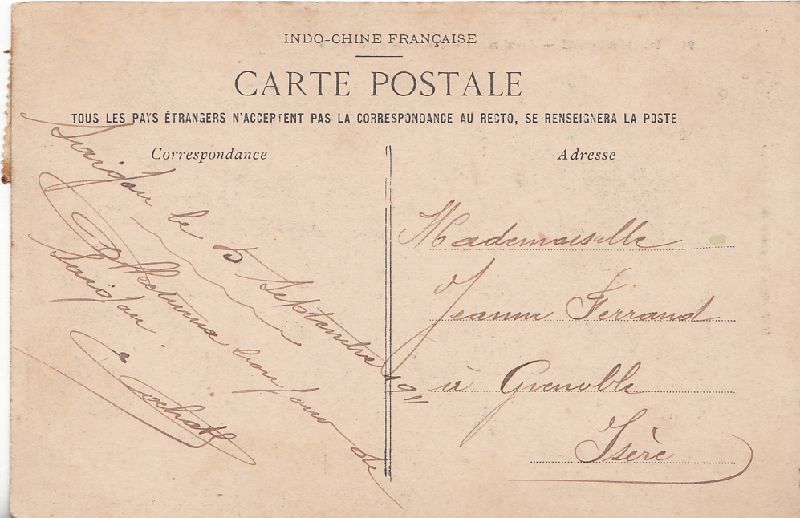 INDO-CHINE FRANÇAISE
CARTE POSTALE
TOUS LES PAYS ÉTRANGERS N'ACCEPTENT PAS LA CORRESPONDANCE AU RECTO, SE RENSEIGNERA LA POSTE
Correspondance
Saigon le 5 Septembre 1911
bonjour de
Saigon
Adresse
Mademoiselle
Jeanne Ferrand
à Grenoble
Isère